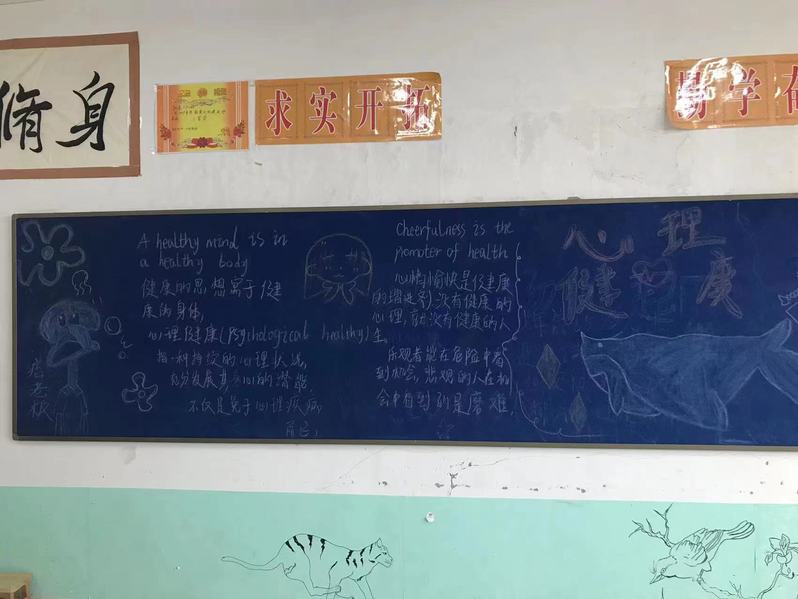 修身
求实开拓
易学奋
A healthy mind is in
a healthy body
健康的思想寓于健
康的身体,
心理健康(Psychological healthy)
指一种持续的心理状况
充分发展其身心的潜能
不仅是免于心理疾病
而已,
Cheerfulness is the
promoter of health
心情愉快是健康
的增进剂)没有健康的
心理,就没有健康的人
生。
乐观者能在危险中看
到机会,悲观的人在机
会中看到的是磨难,
心理
健康